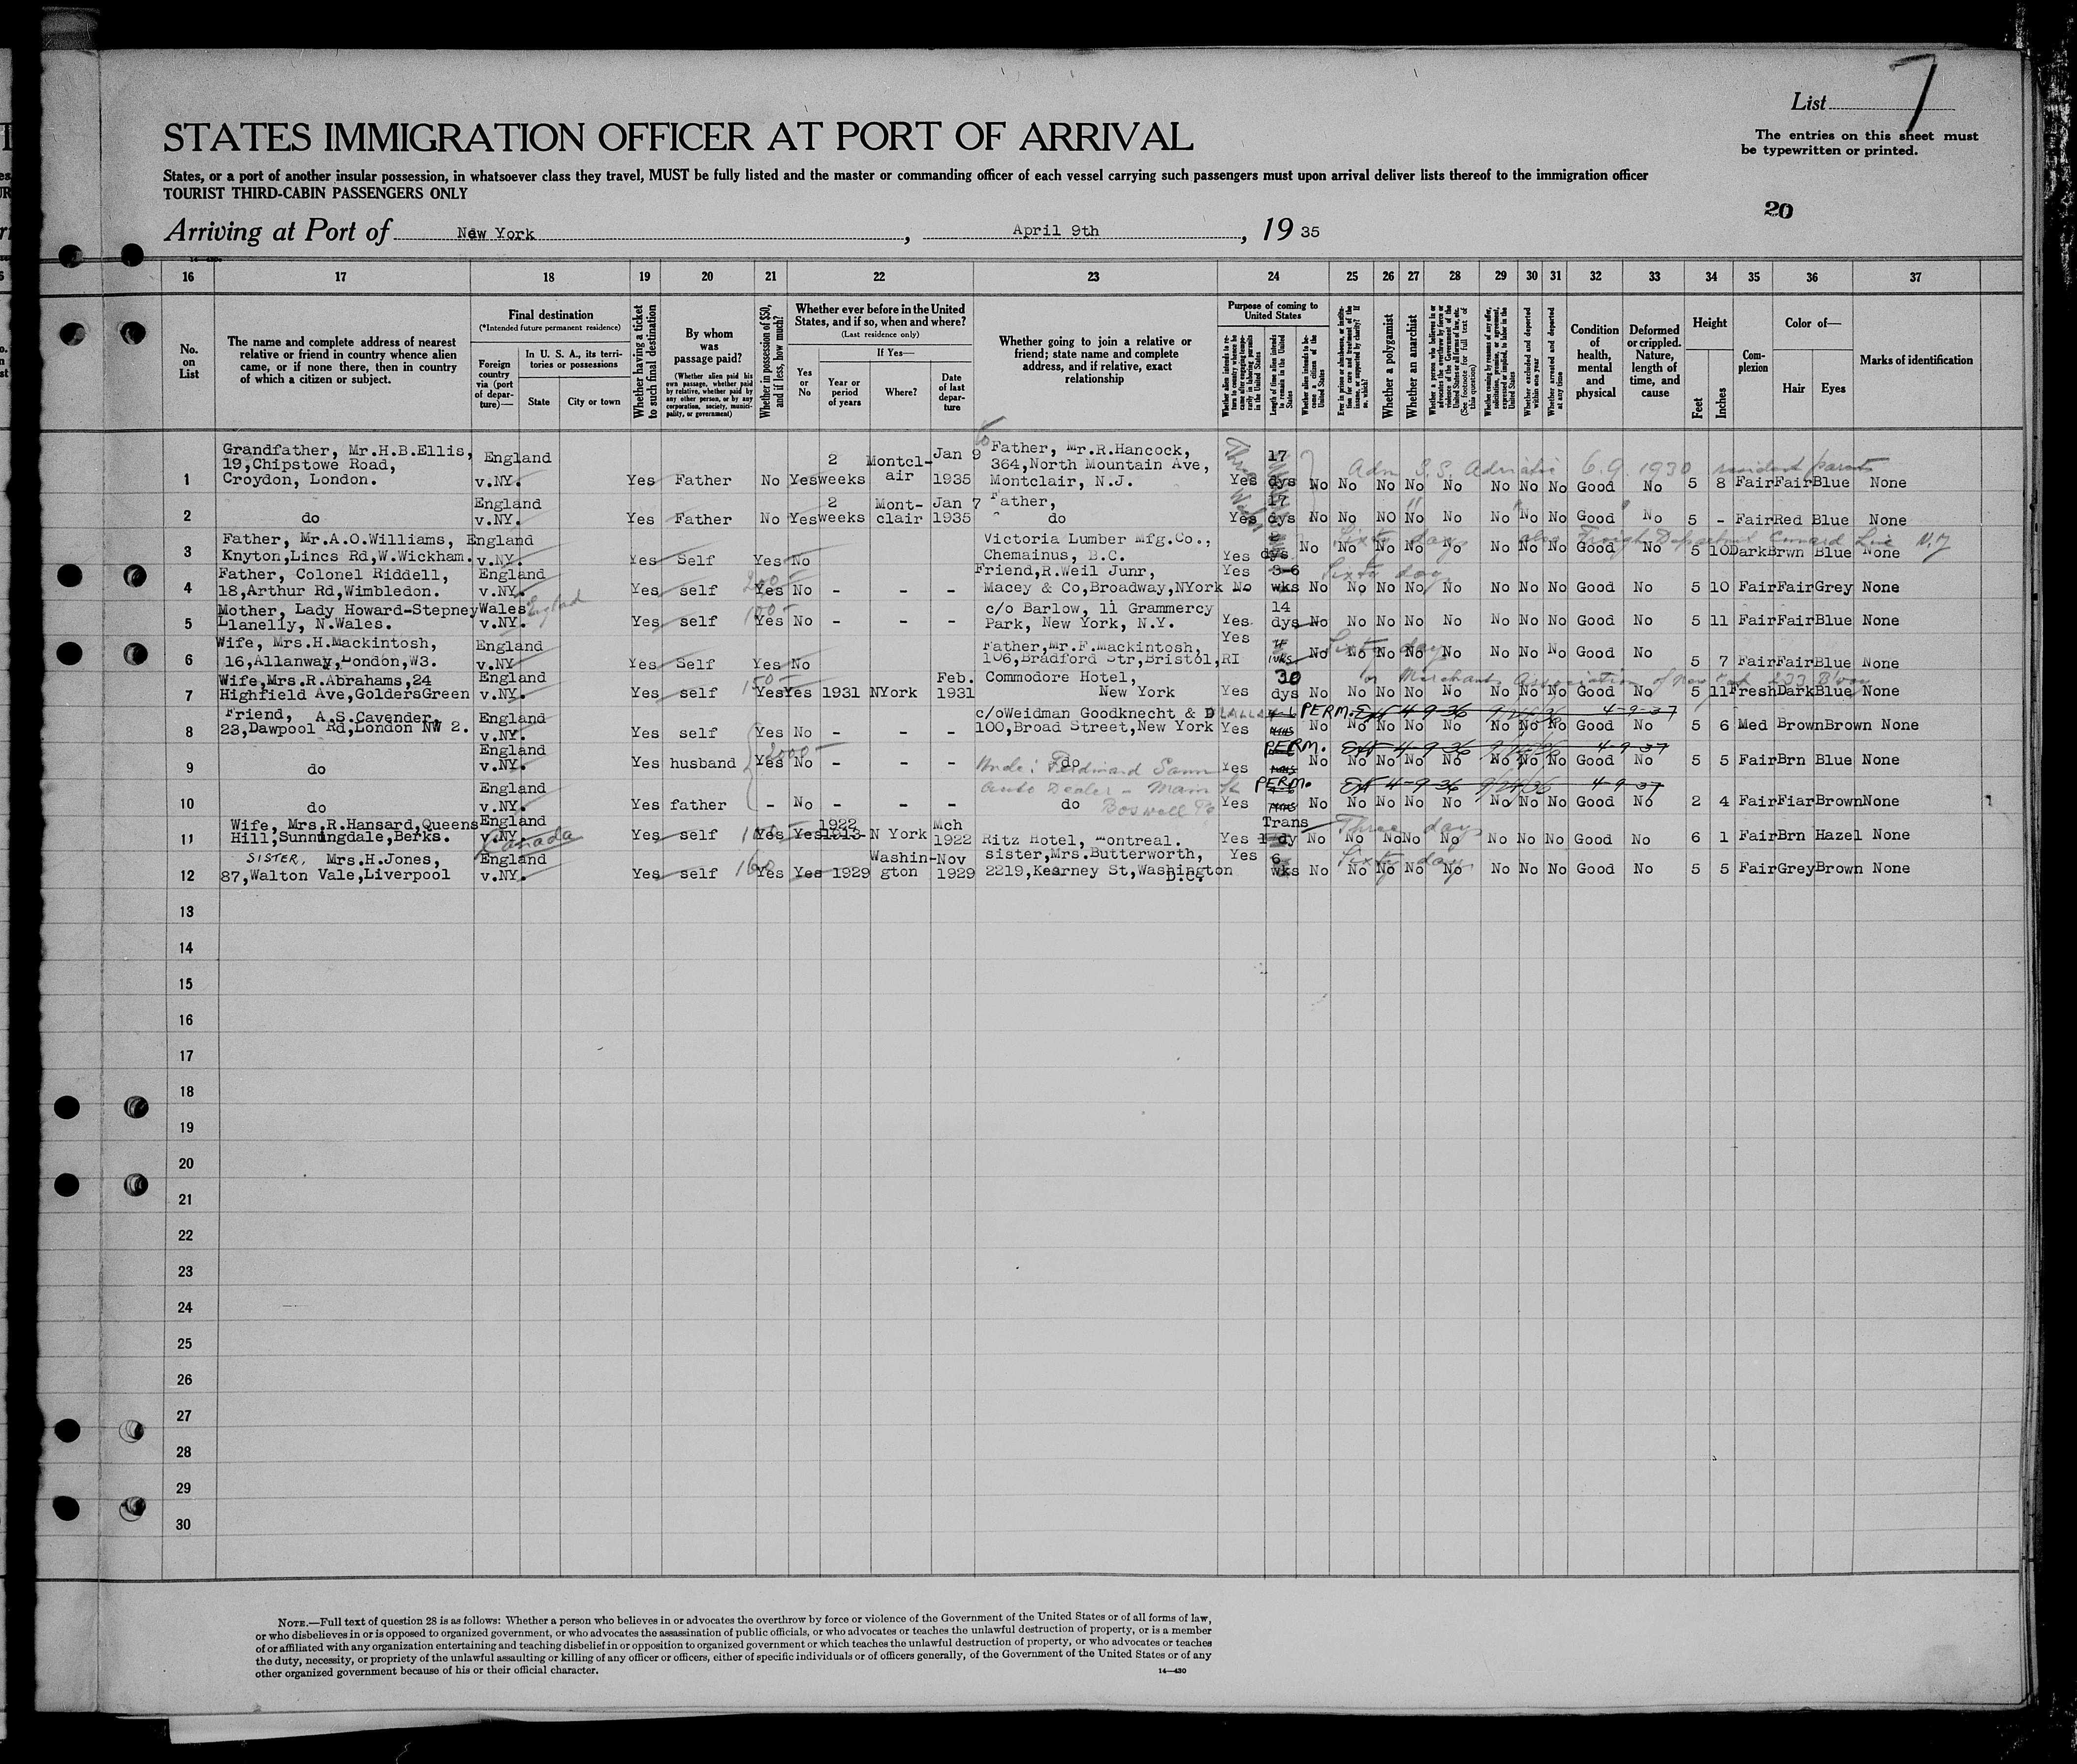 List 7
STATES IMMIGRATION OFFICER AT PORT OF ARRIVAL
The entries on this sheet must
be typewritten or printed.
States, or a port of another insular possession, in whatsoever class they travel, MUST be fully listed and the master or commanding officer of each vessel carrying such passengers must upon arrival deliver lists thereof to the immigration officer
TOURIST THIRD-CABIN PASSENGERS ONLY
20
Arriving at Port of New York, April 9th, 19 35
16 17 18 19 20 21 22 23 24 25 26 27 28 29 30 31 32 33 34 35 36 37
No. on List
The name and complete address of nearest relative or friend in country whence alien came, or if none there, then in country of which a citizen or subject.
Final destination
(*Intended future permanent residence)
Foreign country via (port of departure)—
In U. S. A., its territories or possessions
State
City or town
Whether having a ticket to such final destination
By whom was passage paid?
(Whether alien paid his own passage, whether paid by relative, whether paid by any other person, or by any corporation, society, municipality, or government)
Whether in possession of $50, and if less, how much?
Whether ever before in the United States, and if so, when and where?
(Last residence only)
Yes or No
If Yes—
Year or period of years
Where?
Date of last departure
Whether going to join a relative or friend; state name and complete address, and if relative, exact relationship
Purpose of coming to United States
Length of time alien intends to remain in the United States
Whether alien intends to become a citizen of the United States
Whether a polygamist
Whether an anarchist
(See footnote for full text of this question)
Whether excluded and deported within one year
Whether arrested and deported at any time
Condition of health, mental and physical
Deformed or crippled. Nature, length of time, and cause
Height
Feet
Inches
Complexion
Color of—
Hair
Eyes
Marks of identification
1 Grandfather, Mr.H.B.Ellis, 19,Chipstowe Road, Croydon, London. England v.NY. Yes Father No Yes 2 weeks Montclair Jan 9 1935 Father, Mr.R.Hancock, 364,North Mountain Ave, Montclair, N.J. Yes 17 dys No No No No No No No No Good No 5 8 Fair Fair Blue None
Adm S.S. Adriatic 6.9.1930 resident parents
2 do England v.NY. Yes Father No Yes 2 weeks Mont-clair Jan 7 1935 Father, do Yes 17 dys No No NO No No No No No Good No 5 - Fair Red Blue None
3 Father, Mr.A.O.Williams, Knyton,Lincs Rd,W.Wickham. England v.NY. Yes Self Yes No Victoria Lumber Mfg.Co., Chemainus, B.C. Yes dys No No No No No No No No Good No 5 10 Dark Brwn Blue None
Sixty days also Freight Department Cunard Line N.Y
4 Father, Colonel Riddell, 18,Arthur Rd,Wimbledon. England v.NY. Yes self Yes No - - - Friend,R.Weil Junr, Macey & Co,Broadway,NYork Yes No 3-6 wks No No No No No No No No Good No 5 10 Fair Fair Grey None
Sixty days
5 Mother, Lady Howard-Stepney Llanelly, N.Wales. Wales v.NY. England Yes self 100- Yes No - - - c/o Barlow, 11 Grammercy Park, New York, N.Y. Yes 14 dys No No No No No No No No Good No 5 11 Fair Fair Blue None
6 Wife, Mrs.H.Mackintosh, 16,Allanway,London,W3. England v.NY Yes Self Yes No Father,Mr.F.Mackintosh, 106,Bradford Str,Bristol,RI Yes wks No No No No No No No No Good No 5 7 Fair Fair Blue None
Sixty days
7 Wife,Mrs.R.Abrahams,24 Highfield Ave,GoldersGreen England v.NY. Yes self 150- Yes Yes 1931 NYork Feb. 1931 Commodore Hotel, New York Yes 30 dys No No No No No No No No Good No 5 11 Fresh Dark Blue None
or Merchants Association of New York 233 Bway
8 Friend, A.S.Cavender, 23,Dawpool Rd,London NW 2. England v.NY. Yes self Yes No - - - c/oWeidman Goodknecht & 100,Broad Street,New York Yes PERM. No No No No No No No No Good No 5 6 Med Brown Brown None
Ext 4-9-36 4-9-37
9 do England v.NY. Yes husband 2000- Yes No - - - do Yes PERM. No No No No No No No No Good No 5 5 Fair Brn Blue None
Uncle: Ferdinand
Ext 4-9-36 4-9-37
10 do England v.NY. Yes father - No - - - do Yes PERM. No No No No No No No No Good No 2 4 Fair Fiar Brown None
Auto Dealer - Main St Boswell Pa
Ext 4-9-36 4-9-37
11 Wife, Mrs.R.Hansard,Queens Hill,Sunningdale,Berks. England v.NY. Canada Yes self Yes Yes 1922 1913- N York Mch 1922 Ritz Hotel, Montreal. Yes Trans 1 dy No No No No No No No No Good No 6 1 Fair Brn Hazel None
Three days
12 SISTER, Mrs.H.Jones, 87,Walton Vale,Liverpool England v.NY. Yes self 160 Yes Yes 1929 Washin-gton Nov 1929 sister,Mrs.Butterworth, 2219,Kearney St,Washington D.C. Yes 6 wks No No No No No No No No Good No 5 5 Fair Grey Brown None
Sixty days
13
14
15
16
17
18
19
20
21
22
23
24
25
26
27
28
29
30
NOTE.—Full text of question 28 is as follows: Whether a person who believes in or advocates the overthrow by force or violence of the Government of the United States or of all forms of law,
or who disbelieves in or is opposed to organized government, or who advocates the assassination of public officials, or who advocates or teaches the unlawful destruction of property, or is a member
of or affiliated with any organization entertaining and teaching disbelief in or opposition to organized government or which teaches the unlawful destruction of property, or who advocates or teaches
the duty, necessity, or propriety of the unlawful assaulting or killing of any officer or officers, either of specific individuals or of officers generally, of the Government of the United States or of any
other organized government because of his or their official character.
14—430